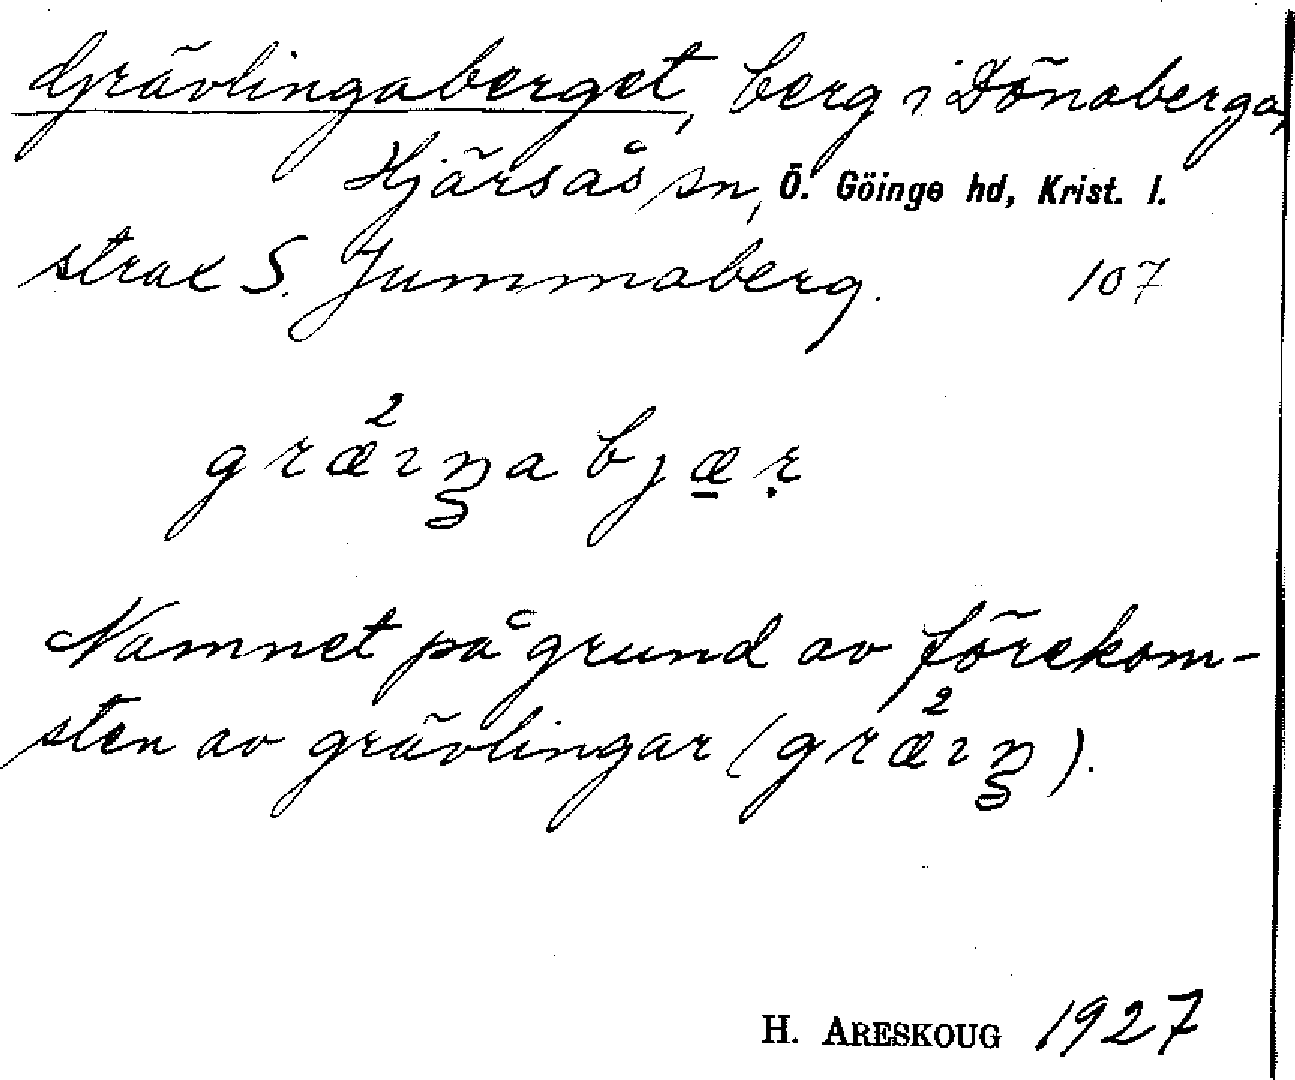 Grävlingaberget, berg i Dönaberga,
Hjärsås sn, Ö. Göinge hd, Krist. l.
strax S. Jummaberg. 107
Namnet på grund av förekom-
sten av grävlingar
H. ARESKOUG 1927